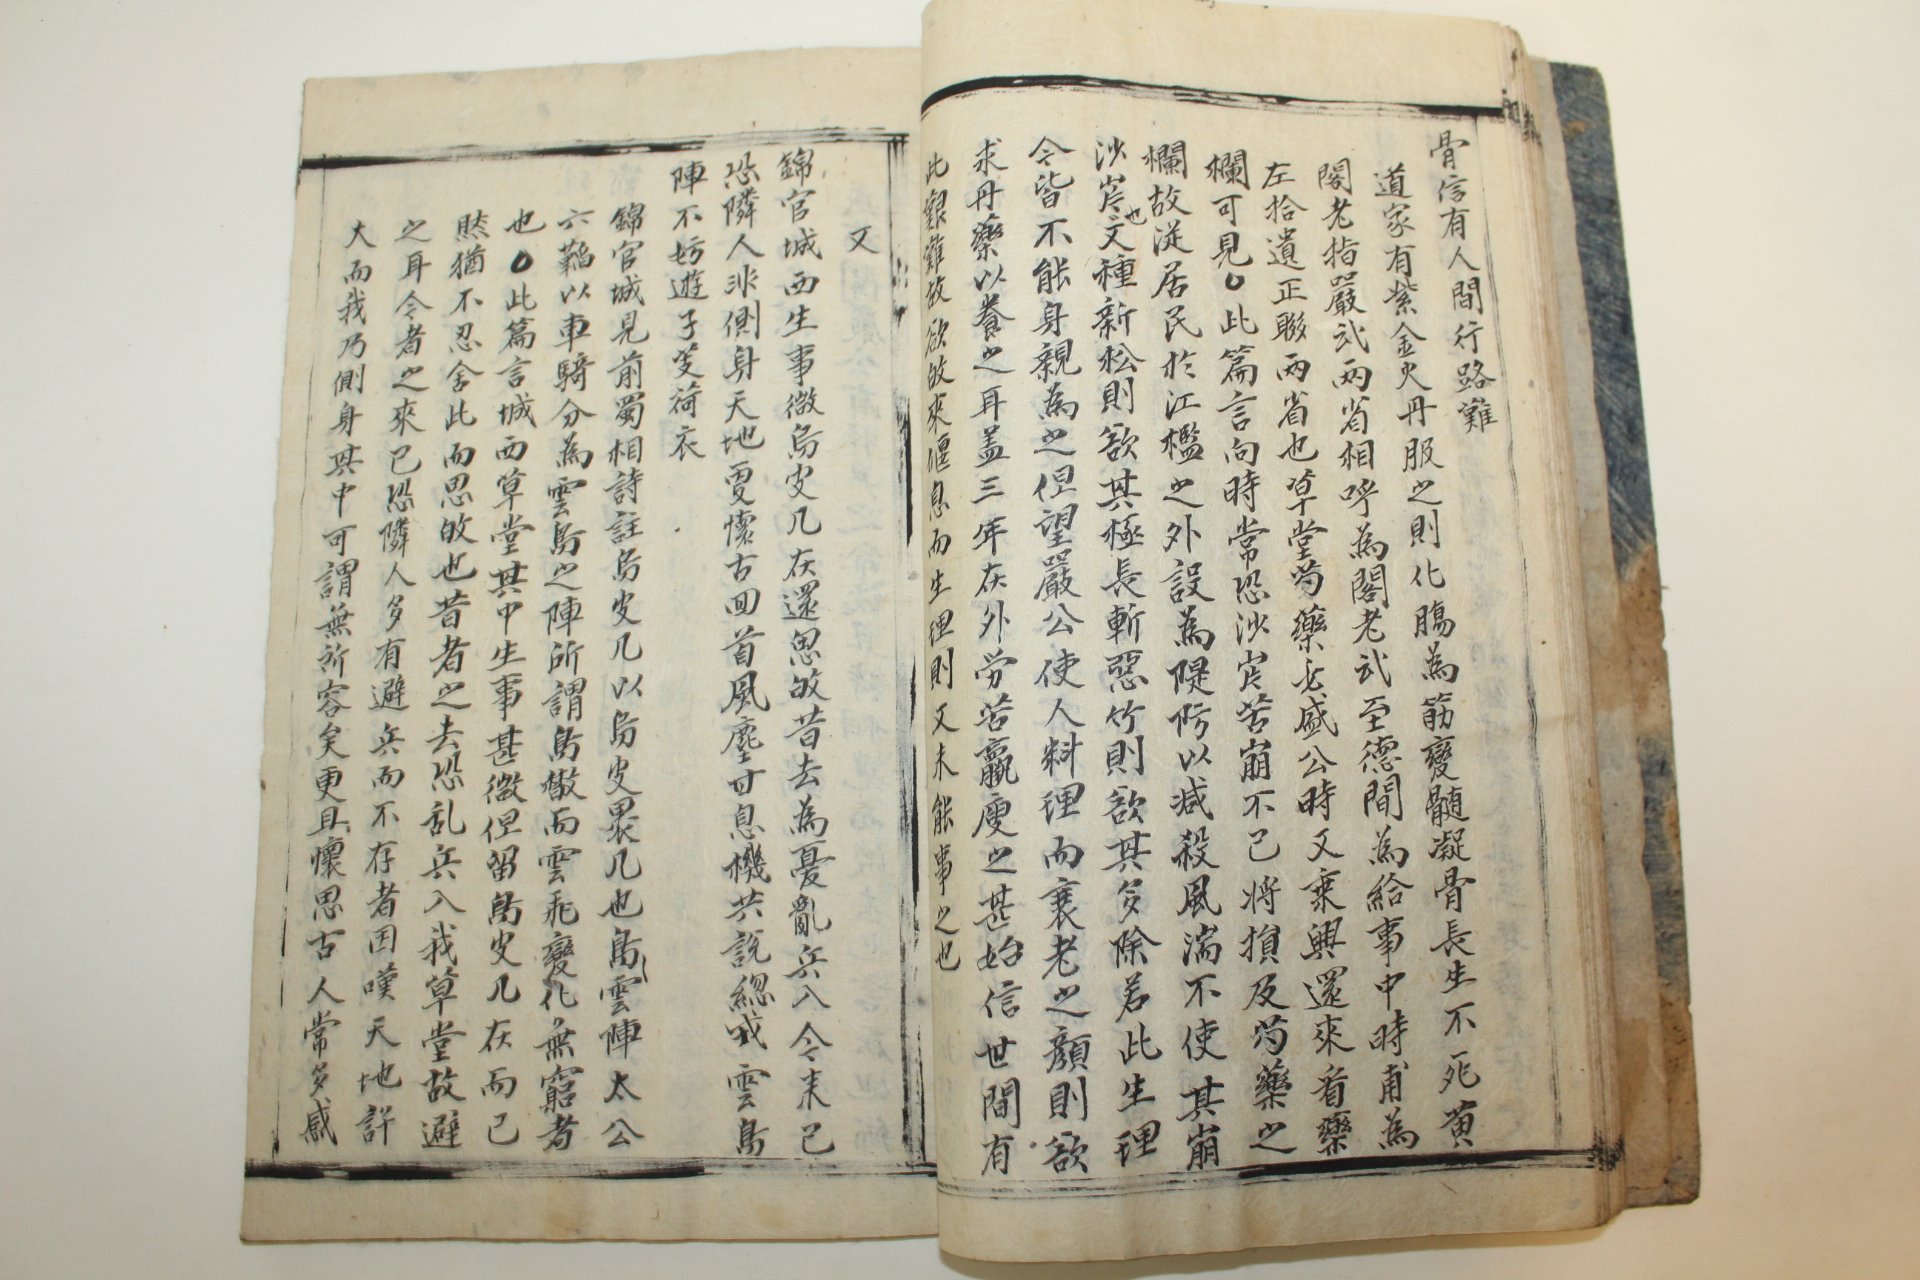 骨信有人間行路難
道家有紫金火丹服之則化腸為筋變髓凝骨長生不死黃
閣老指嚴武兩省相呼為閣老武至德間為給事中時甫為
左拾遺正聯兩省也草堂芍藥長盛公時又乘興還來看藥
欄可見○此篇言向時常恐沙岸苦崩不已將損及芍藥之
欄故從居民於江檻之外設為隄防以減殺風湍不使其崩
沙岸也文種新松則欲其極長斬惡竹則欲其多除若此生理
今皆不能身親為之但望嚴公使人料理而衰老之顏則欲
求丹藥以養之耳盖三年在外勞苦羸瘦之甚始信世間有
此艱難故欲故來偃息而生理則又未能事之也
又
錦官城西生事微烏皮几在還思故昔去為憂亂兵入今來已
恐隣人非側身天地更懷古回首風塵甘息機共說總戎雲鳥
陣不妨遊子芰荷衣
錦官城見前蜀相詩註烏皮几以烏皮裹几也鳥雲陣太公
六韜以車騎分為雲鳥之陣所謂鳥散而雲飛變化無窮者
也○此篇言城西草堂其中生事甚微但留烏皮几在而已
然猶不忍舍此而思故也昔者之去恐乱兵入我草堂故避
之耳今者之來已恐隣人多有避兵而不存者因嘆天地許
大而我乃側身其中可謂無所容矣更且懷思古人常多感